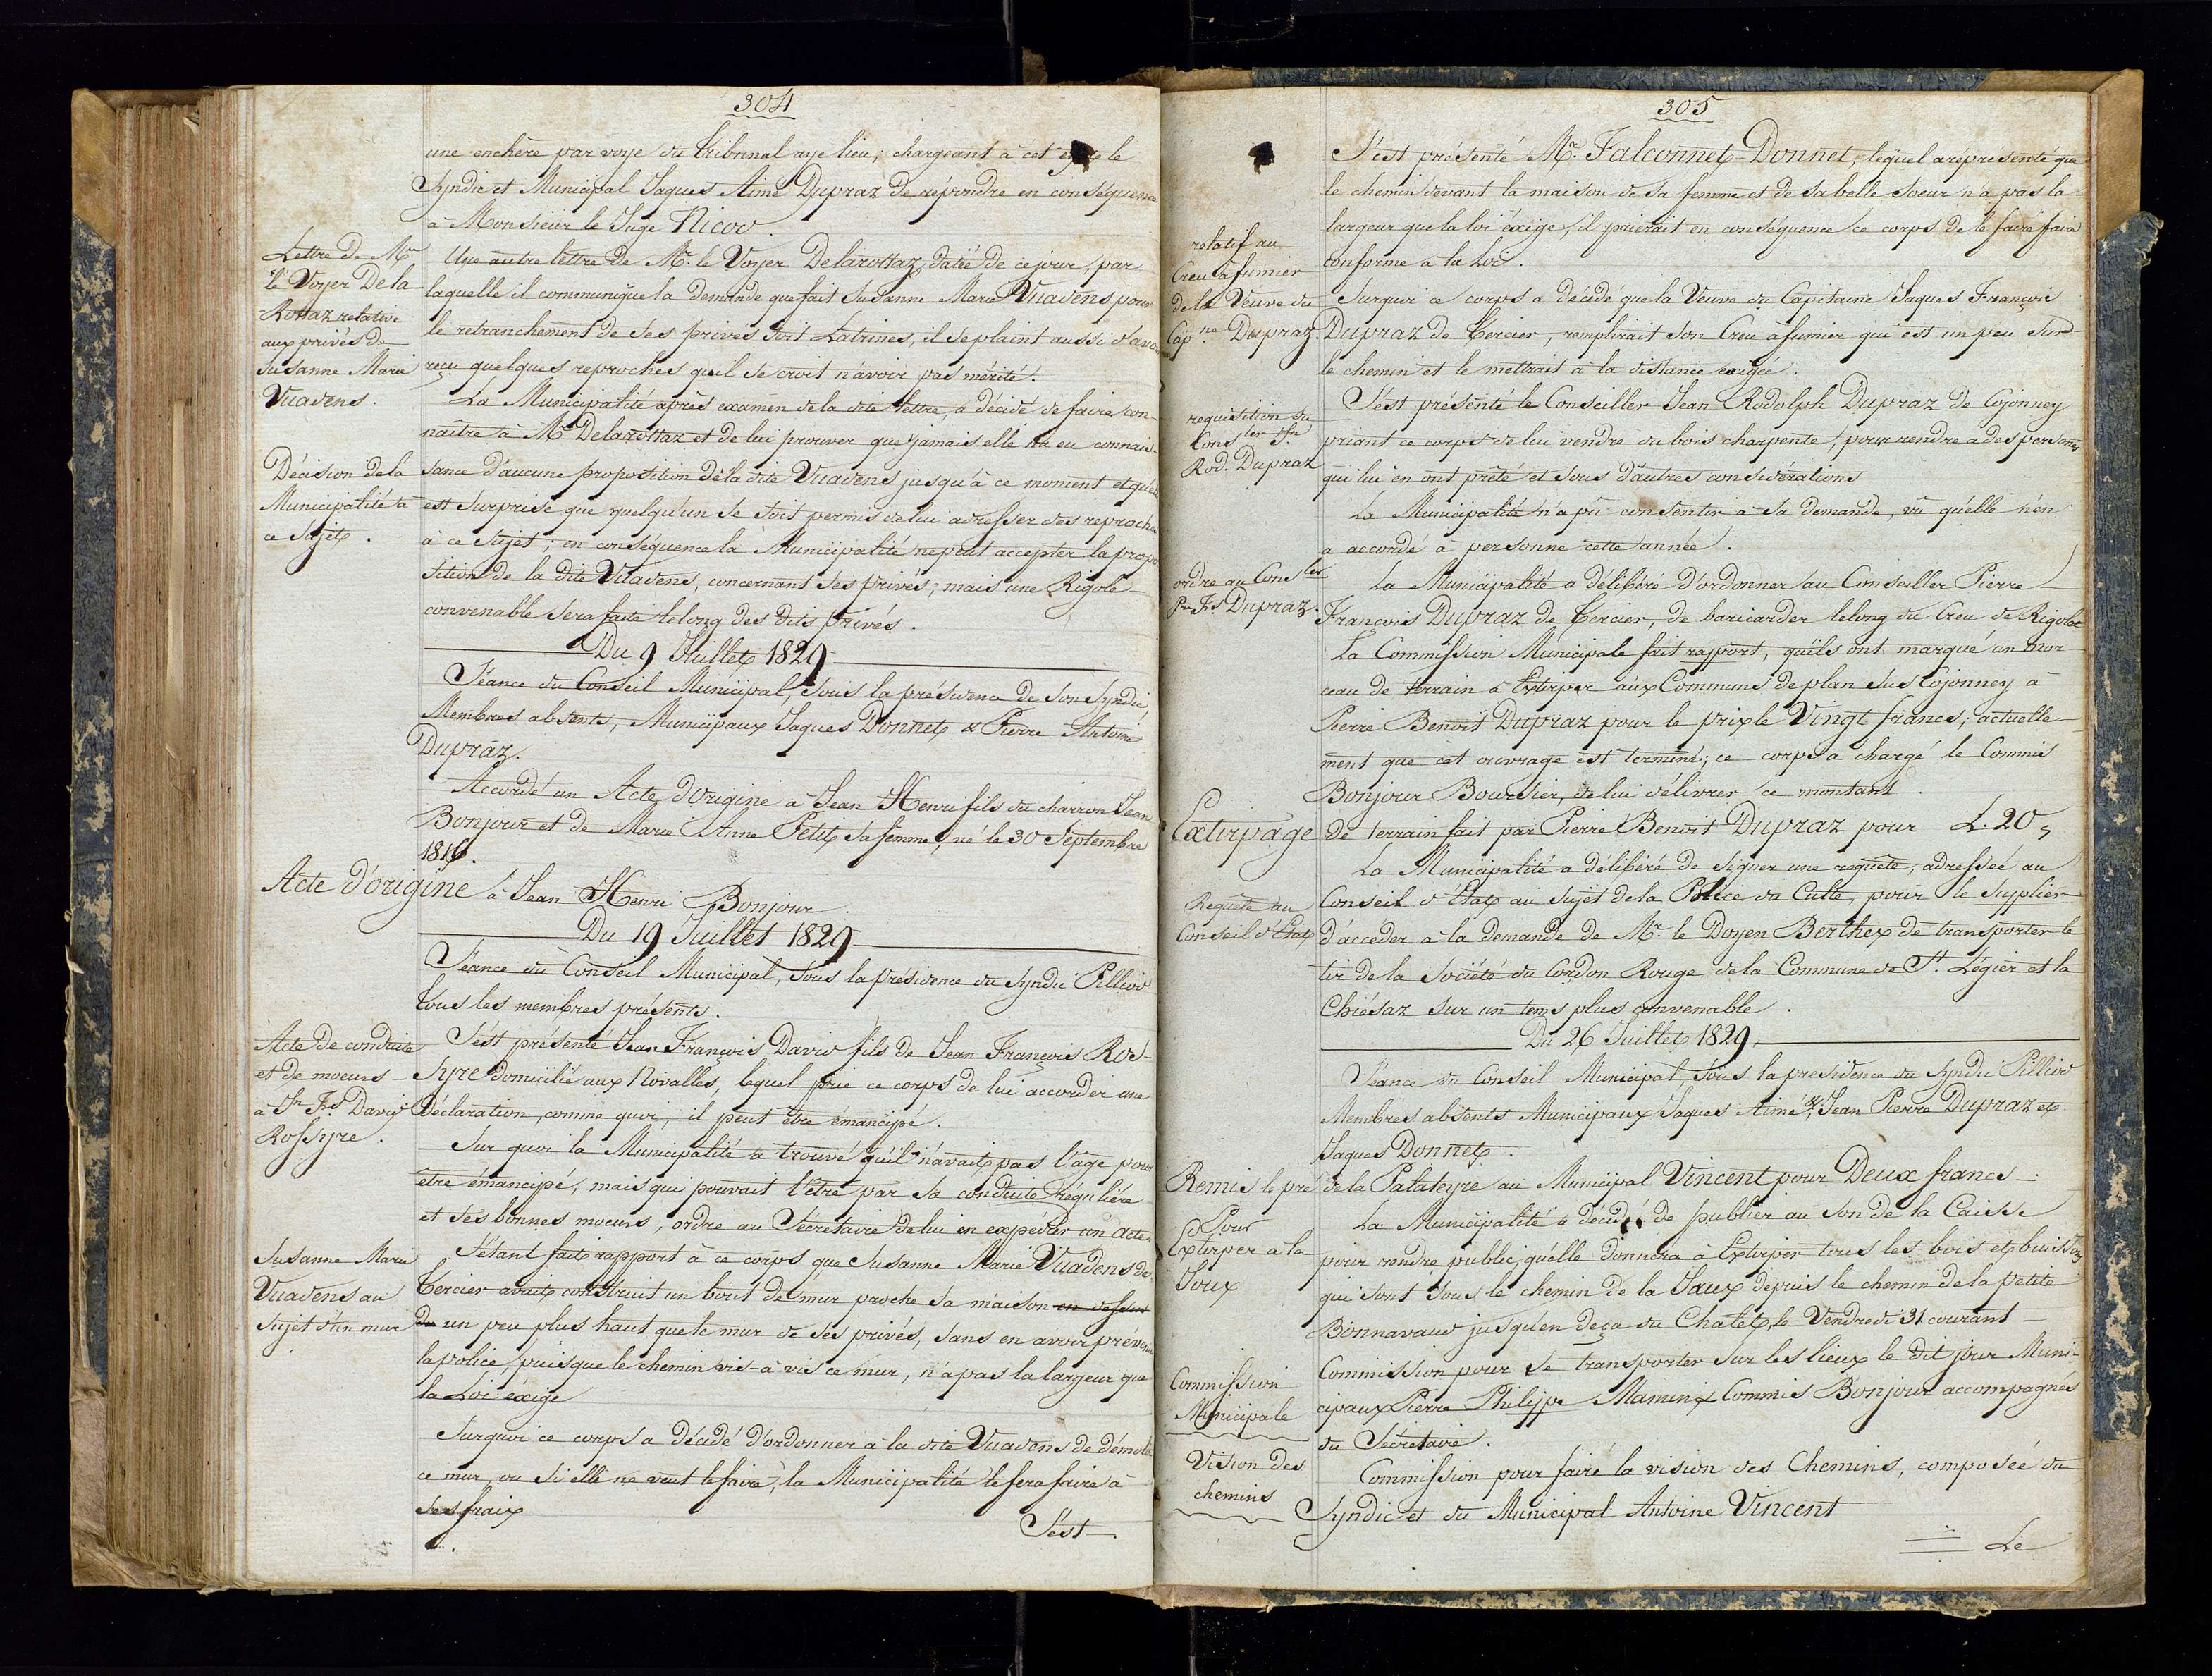 304
une enchère par voye du tribunal aye lieu; chargeant à cet effet le
Syndic et Municipal Jaques Aimé Dupraz de répondre en conséquence
à Monsieur le Juge Nicod.
Lettre de Mr
le Voyer De la
Rottaz relative
aux privés de
Susanne Marie
Vuadens.
Une autre lettre de Mr. le Voyer Delarottaz, datée de ce jour, par
laquelle il communique la demande que fait Susanne Marie Vuadens pour
le retranchement de ses privés soit Latrines, il se plaint aussi d'avoir
reçu quelques reproches qu'il se croit n'avoir pas mérité.
La Municipalité après examen de la dite lettre, a décidé de faire con-
naître à Mr Delarottaz et de lui prouver que jamais elle n'a eu connais-
Décision de la
Municipalité à
ce sujet.
sance d'aucune proposition de la dite Vuadens jusqu'à ce moment et qu'elle
est surprise que quelqu'un se soit permis de lui adresser des reproches
à ce sujet; en conséquence la Municipalité ne peut accepter la propo
sition de la dite Vuadens, concernant ses privés; mais une Rigole
convenable sera faite le long des dits privés.
Du 9 Juillet 1829
Séance du Conseil Municipal, sous la présidence de son Syndic,
Membres absents, Municipaux Jaques Donnet & Pierre Antoine
Dupraz.
Accordé un Acte d'Origine à Jean Henri fils du charron Jean
Bonjour et de Marie Anne Petit sa femme, né le 30 Septembre
1816.
Acte d'origine à Jean Henri Bonjour.
Du 19 Juillet 1829
Séance du Conseil Municipal, sous la présidence du Syndic Pilliod
tous les membres présents.
Acte de conduite
et de moeurs
à Jn Fs David
Rossyre.
S'est présenté Jean François David fils de Jean François Ros-
syre domicilié aux Novalles, lequel prie ce corps de lui accorder une
Déclaration, comme quoi, il peut être émancipé.
Sur quoi la Municipalité a trouvé qu'il n'avait pas l'âge pour
être émancipé, mais qui pouvait l'être par sa conduite régulière
et ses bonnes moeurs, ordre au Sécretaire de lui en expédier un acte
Susanne Marie
Vuadens au
sujet d'un mur
S'étant fait rapport à ce corps que Susanne Marie Vuadens de
Cercier avait construit un bout de mur proche sa maison en dessus
du un peu plus haut que le mur de ses privés, sans en avoir prévenu
la police, puisque le chemin vis-à-vis ce mur, n'a pas la largeur que
la Loi éxige
Surquoi ce corps a décidé d'ordonner à la dite Vuadens de démolir
ce mur, ou si elle ne veut le faire, la Municipalité le fera faire à
ses fraix
S'est
305
S'est présenté Mr. Falconnet-Donnet, lequel a représenté que
le chemin devant la maison de sa femme et de sa belle soeur n'a pas la
largeur que la loi éxige, il prierait en conséquence ce corps de le faire faire
conforme à la Loi.
relatif au
Creu à fumier
de la Veuve du
Capne Dupraz.
Surquoi ce corps a décidé que la Veuve du Capitaine Jaques François
Dupraz de Cercier, remplirait son Creu à fumier qui est un peu sur
le chemin et le mettrait à la distance exigée.
requisition du
Consler Jn
Rod. Dupraz
S'est présenté le Conseiller Jean Rodolph Dupraz de Cojonney
priant ce corps de lui vendre du bois charpente, pour rendre à des personnes
qui lui en ont prêté et sous d'autres considérations
La Municipalité n'a pû consentir à sa demande, vû qu'elle n'en
a accordé à personne cette année.
ordre au Consler
Pre Fs Dupraz.
La Municipalité a délibéré d'ordonner au Conseiller Pierre
François Dupraz de Cercier, de baricarder le long du Creu de Rigolet
La Commission Municipale fait rapport, qu'ils ont marqué un mor-
ceau de terrain à Extirper aux Communs de plan sus Cojonney à
Pierre Benoit Dupraz pour le prix le Vingt francs; actuelle-
ment que cet ouvrage est terminé; ce corps a chargé le Commis
Bonjour Boursier, de lui délivrer ce montant.
Extirpage de terrain fait par Pierre Benoit Dupraz pour L. 20,,
La Municipalité a délibéré de signer une requête, adressée au
Requête au
Conseil d'Etat
Conseil d'Etat au sujet de la Police du Culte, pour le supplier
d'accéder à la demande de Mr. le Doyen Berthex de transporter le
tir de la Société du Cordon Rouge de la Commune de St. Légier et la
Chiésaz sur un tems plus convenable.
Du 26 Juillet 1829.
Séance du Conseil Municipal, sous la présidence du Syndic Pilliod
Membres absents Municipaux Jaques Aimé &, Jean Pierre Dupraz et
Jaques Donnet.
Remis le pré de la Palateyre au Municipal Vincent pour Deux francs
Pour
Extirper à la
Joux
La Municipalité a décidé de publier au son de la Caisse
pour rendre public, qu'elle donnera à Extirper tous les bois et buissons
qui sont sous le chemin de la Jaux depuis le chemin de la petite
Bonnavaud jusqu'en deça du Chatet, le Vendredi 31 courant
Commission
Municipale
Commission pour se transporter sur les lieux le dit jour Muni-
cipaux Pierre Philippe Mamin & Commis Bonjour accompagnés
du Sécretaire.
Vision des
chemins
Commission pour faire la vision des Chemins, composée du
Syndic et du Municipal Antoine Vincent
Le